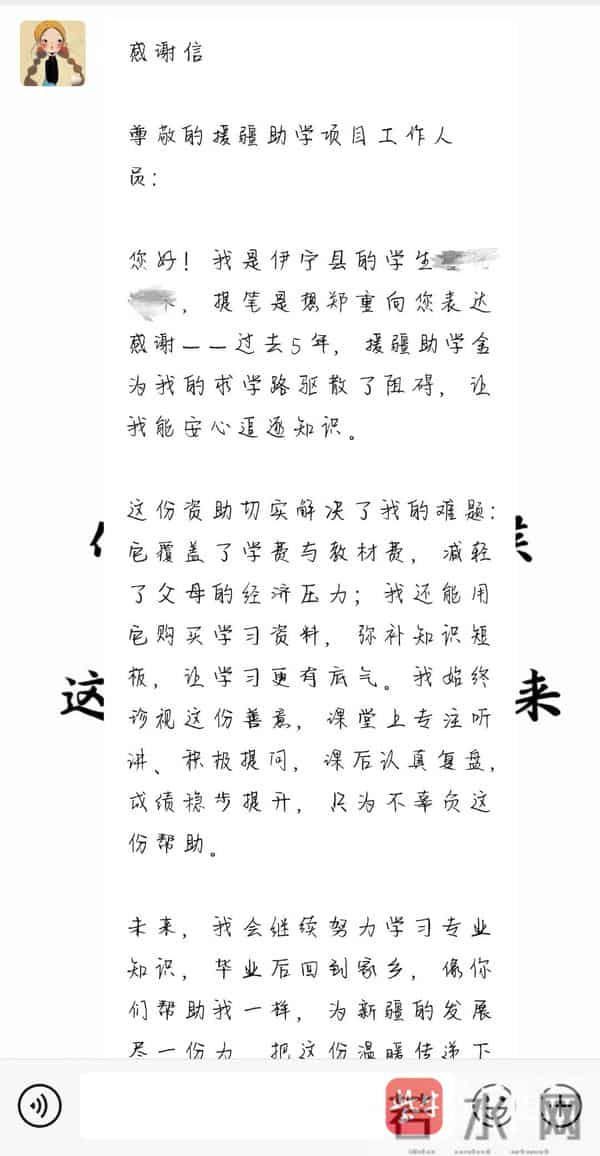 感谢信
尊敬的援疆助学项目工作人
员：
您好！我是伊宁县的学生
，提笔是想郑重向您表达
感谢——过去5年，援疆助学金
为我的求学路驱散了阻碍，让
我能安心追逐知识。
这份资助切实解决了我的难题：
它覆盖了学费与教材费，减轻
了父母的经济压力；我还能用
它购买学习资料，弥补知识短
板，让学习更有底气。我始终
珍视这份善意，课堂上专注听
讲、积极提问，课后认真复盘，
成绩稳步提升，只为不辜负这
份帮助。
这
来
未来，我会继续努力学习专业
知识，毕业后回到家乡，像你
们帮助我一样，为新疆的发展
尽一份力，把这份温暖传递下
紫牛